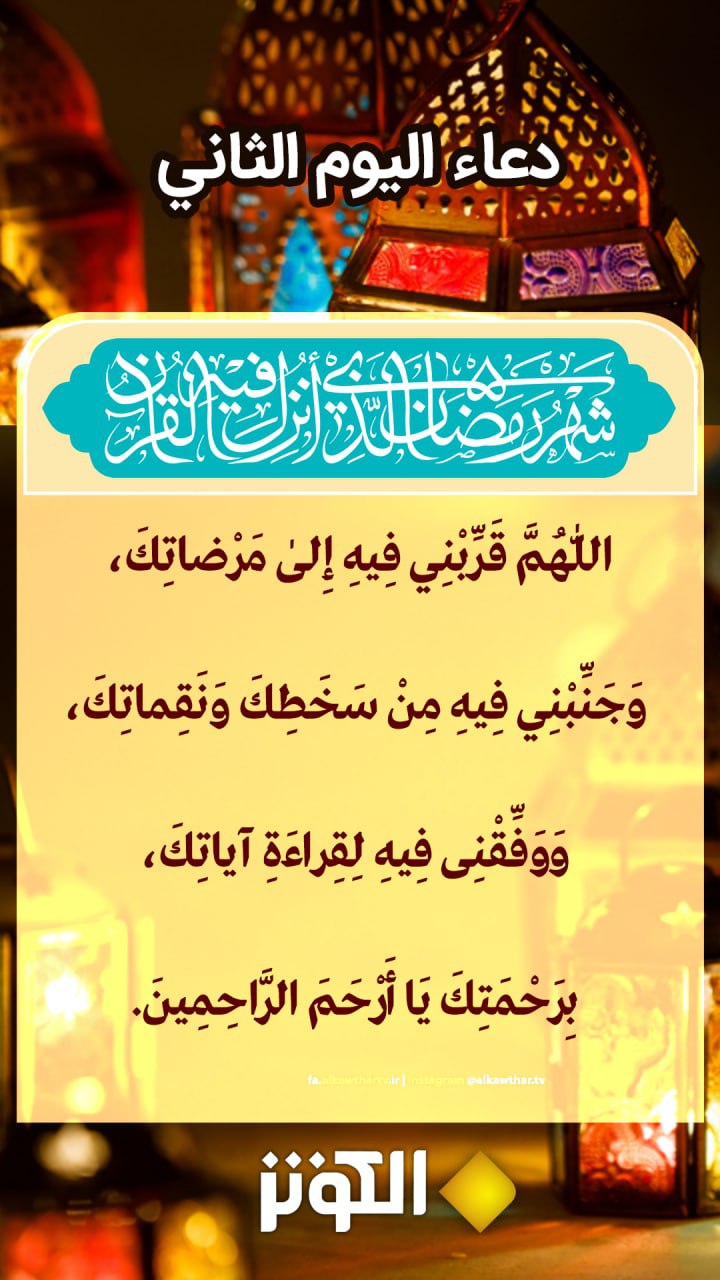 دعاء اليوم الثاني
شهر رمضان الذي أنزل فيه القرآن
اللّٰهُمَّ قَرِّبْنِي فِيهِ إِلىٰ مَرْضاتِكَ،
وَجَنِّبْنِي فِيهِ مِنْ سَخَطِكَ وَنَقِماتِكَ،
وَوَفِّقْنِی فِيهِ لِقِراءَةِ آياتِكَ،
بِرَحْمَتِكَ يَا أَرْحَمَ الرَّاحِمِينَ.
fa.alkawthartv.ir | instagram @alkawthar.tv
الكوثر